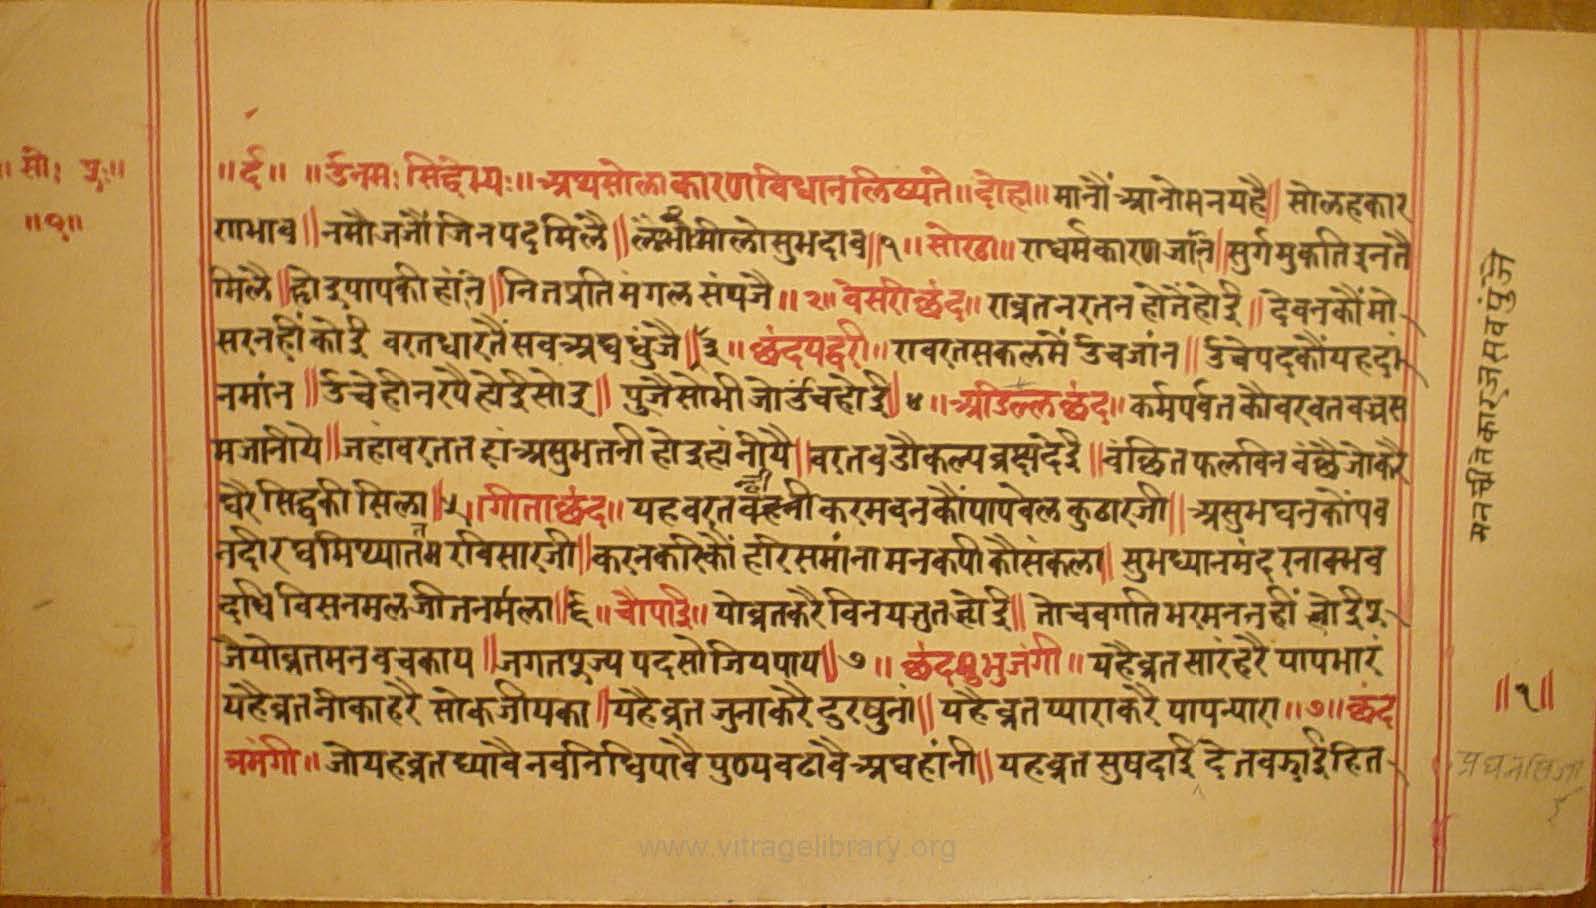 ॥ सो: पु:॥
॥१॥
॥ र्द ॥ ॥ र्उनमः सिद्धेभ्यः ॥ अथ सोला कारण विधान लिख्यते ॥ दोहा ॥ मानौं आनो मन यहै ॥ सोलह कार
ण भाव ॥ नमौ जजौं जिन पद मिलै ॥ सुभदाव ॥ १ ॥ सोरठा ॥ रा धर्म कारण जांनि ॥ सुर्ग मुकति इनतै
मिलै ॥ होइ पाप की हांनि ॥ नित प्रति मंगल संपजै ॥ २ ॥ वेसरी छंद ॥ रा व्रत नर तन होतैं होई ॥ देवन कौं मो
सर नहीं कोई वरत धारतैं सब अघ धुंजै ॥ ३ ॥ छंद पद्धरी ॥ रा वरत सकल मैं र्उच जांन ॥ र्उचे पद कौं यह दां
न मांन ॥ र्उचे ही नर पै होई सोइ ॥ पुजै सो भी जो र्उच होई ॥ ४ ॥ अरिडल्ल छंद ॥ कर्म पर्वत कौ वरवत वज्र स
म जानीयै ॥ जहां वरत तहां असुभ तनी होइ हांनीयै ॥ वरत वडौ कल्प व्रक्ष देई ॥ वंछित फल विन वंछै जो करै
धरै सिद्ध की सिला ॥ ५ ॥ गीता छंद ॥ यह वरत वन्ही करम वन कौं पाप वेल कुठार जी ॥ असुभ घन कों पव
न दीरघ मिथ्यातम रवि सार जी ॥ करन करि कौं हरि समांना मन कपी कौ संकला ॥ सुभ ध्यान मंदर नाक भव
दधि विसन मल जीत नर्मला ॥ ६ ॥ चौपाई ॥ यो व्रत करै विनय जुत होई ॥ तो चव गति भरमन नहीं होई पु
जै यो व्रत मन वच काय ॥ जगत पूज्य पद सौ जिय पाय ॥ ७ ॥ छंद भुजंगी ॥ यहै व्रत सारं हरै पाप भारं
यहै व्रत नीका हरै सोक जीयका ॥ यहै व्रत जुना करै दुरषुनां ॥ यहै व्रत प्यारा करै पाप न्यारा ॥ ७ ॥ छंद
त्रभंगी ॥ जो यह व्रत ध्यावै नव निधि पावै पुण्य वढावै अघ हांनी ॥ यह व्रत सुषदाई देत वडाई हित
मन चीते कारज सब पुंजे
॥१॥
www.vitragelibrary.org